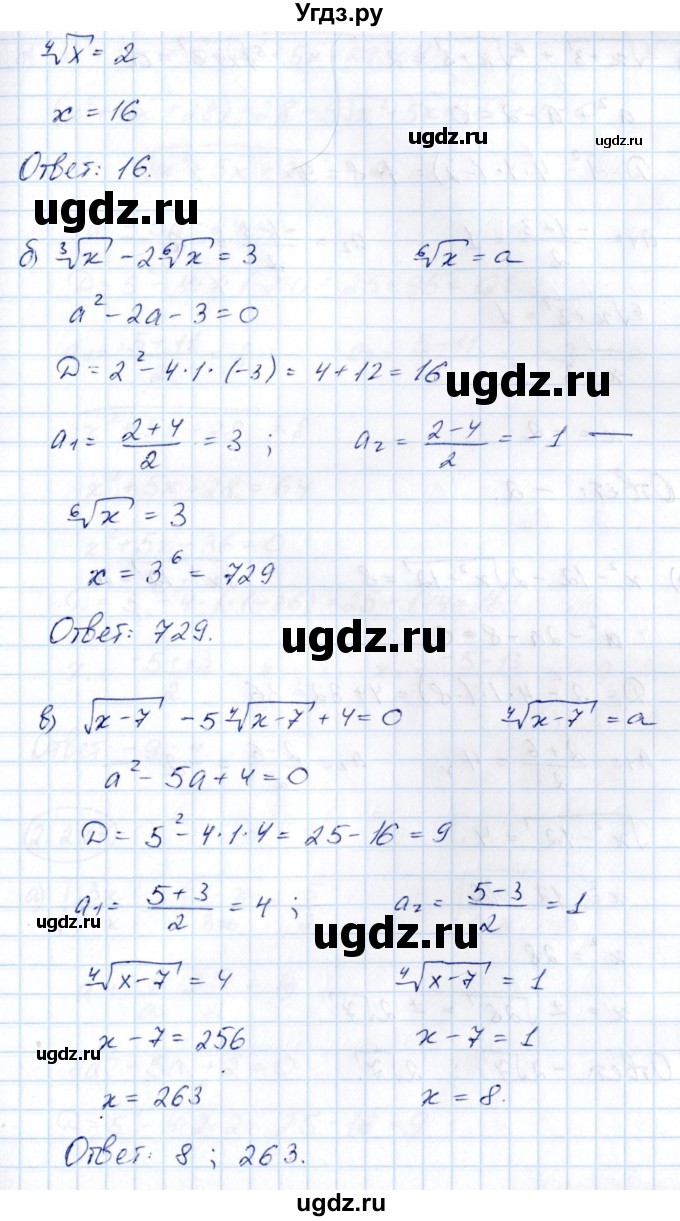 Угдз.ру
⁴√x = 2
x = 16
ugdz.ru
ugdz.ru
Ответ: 16.
ugdz.ru
б) ³√x - 2 ⁶√x = 3 ⁶√x = a
a² - 2a - 3 = 0
D = 2² - 4·1·(-3) = 4 + 12 = 16
ugdz.ru
a₁ = (2+4)/2 = 3 ; a₂ = (2-4)/2 = -1 —
⁶√x = 3
x = 3⁶ = 729
Ответ: 729.
ugdz.ru
в) √(x-7) - 5 ⁴√(x-7) + 4 = 0 ⁴√(x-7) = a
a² - 5a + 4 = 0
D = 5² - 4·1·4 = 25 - 16 = 9
a₁ = (5+3)/2 = 4 ; a₂ = (5-3)/2 = 1
ugdz.ru
ugdz.ru
⁴√(x-7) = 4 ⁴√(x-7) = 1
x - 7 = 256 x - 7 = 1
ugdz.ru
x = 263 x = 8.
Ответ: 8 ; 263.
ugdz.ru